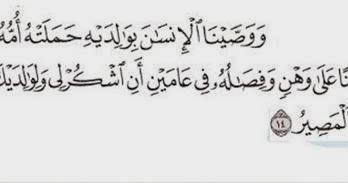 وَوَصَّيْنَا ٱلْإِنسَٰنَ بِوَٰلِدَيْهِ حَمَلَتْهُ أُمُّهُۥ
نًا عَلَىٰ وَهْنٍ وَفِصَٰلُهُۥ فِى عَامَيْنِ أَنِ ٱشْكُرْ لِى وَلِوَٰلِدَيْكَ
ٱلْمَصِيرُ ١٤